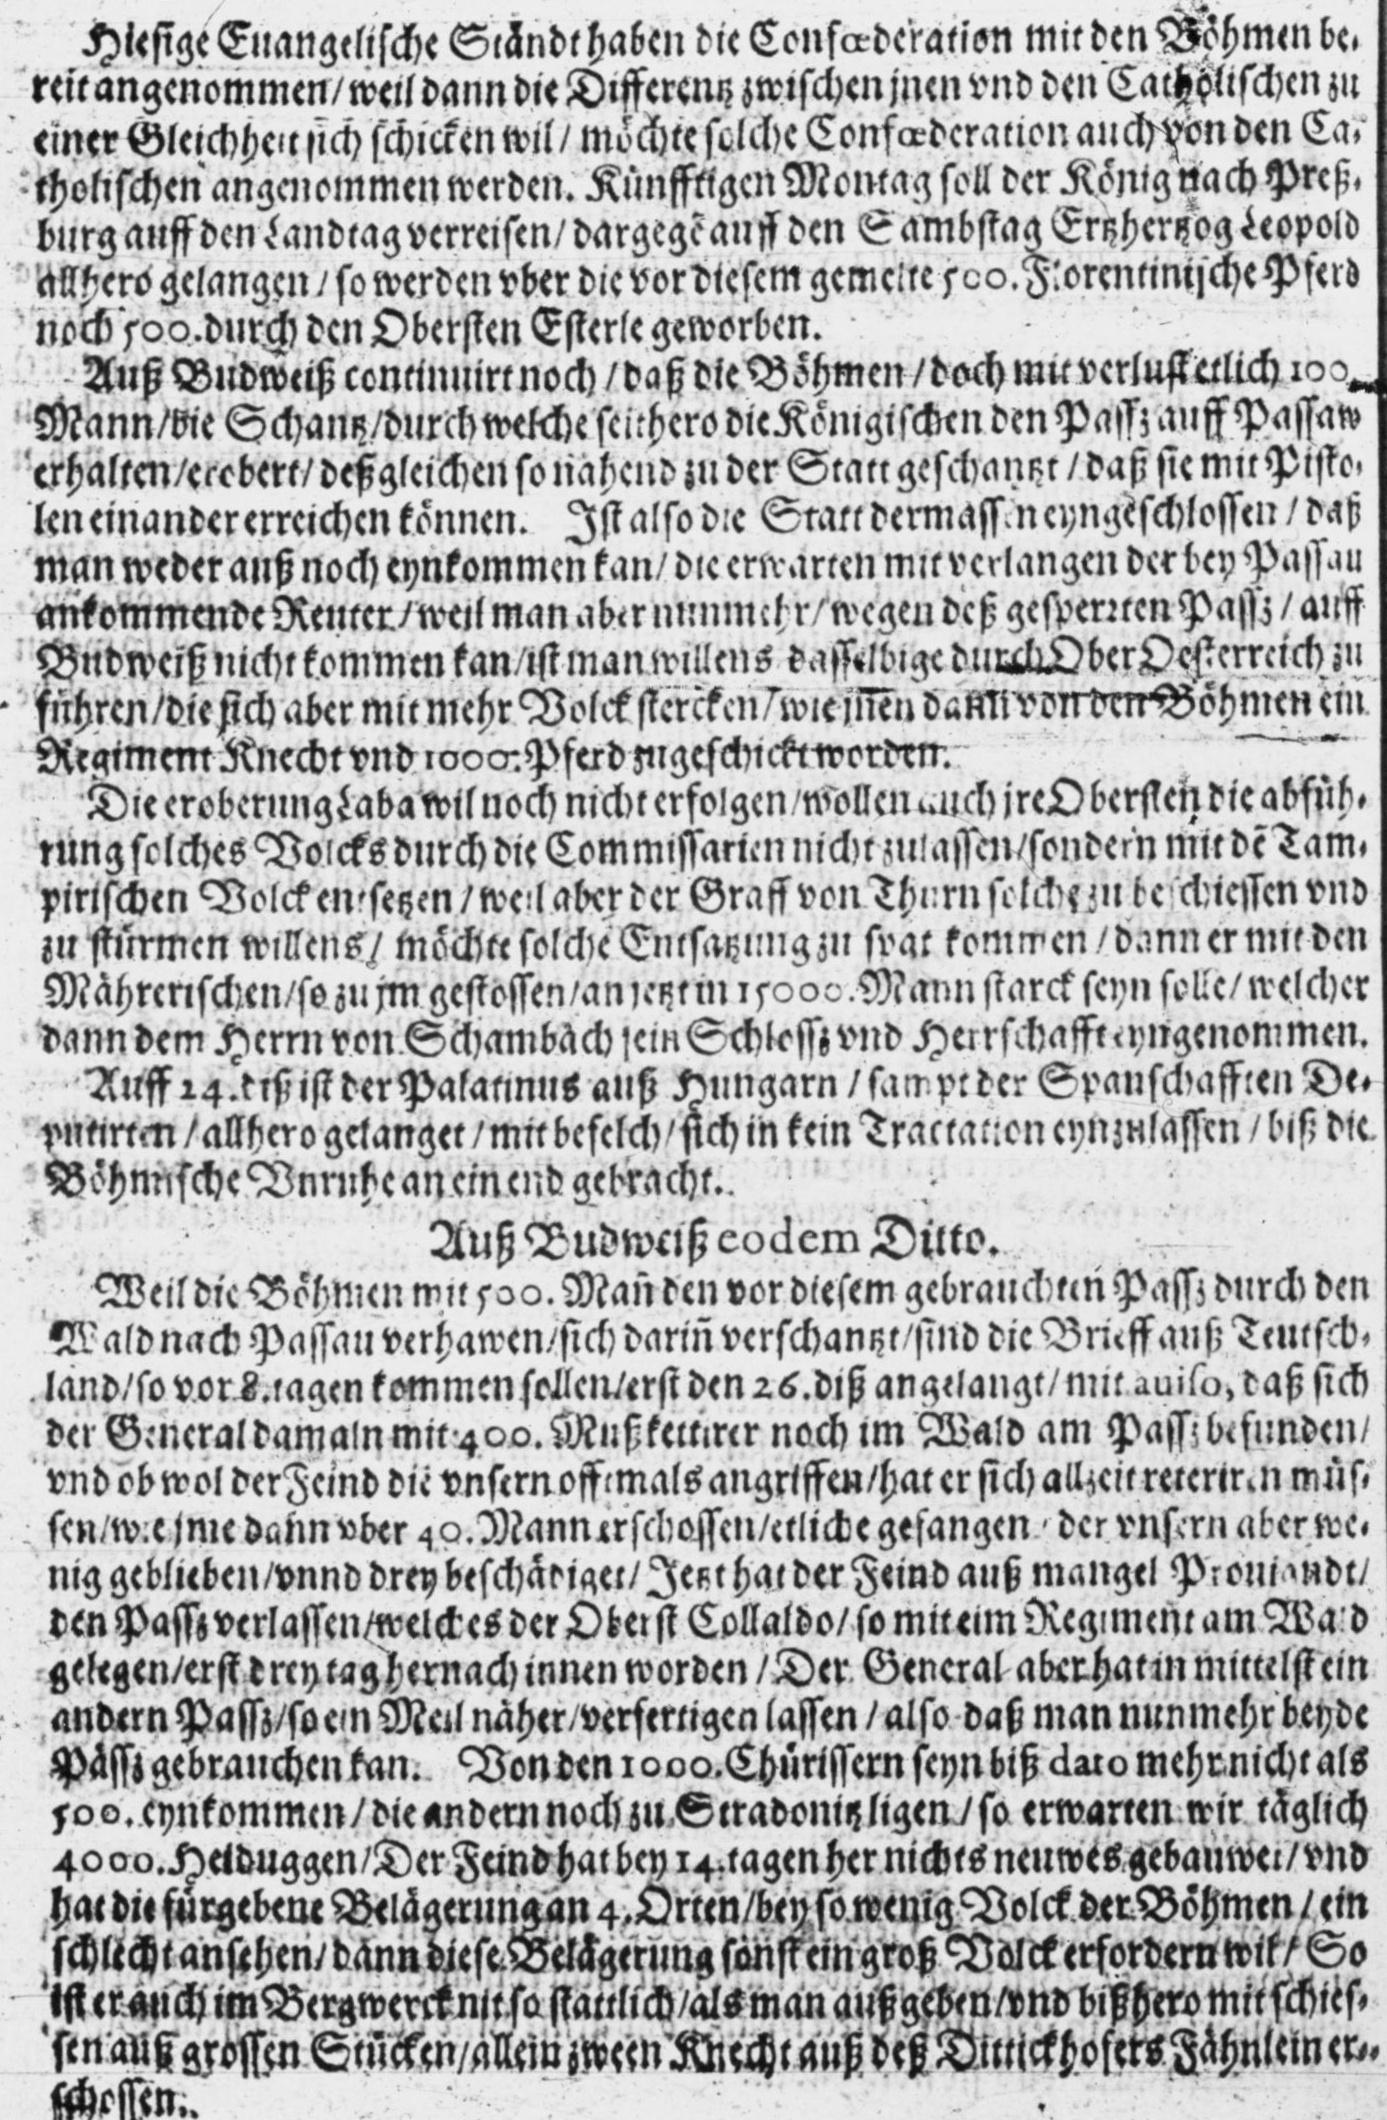 Hiesige Euangelische Ständt haben die Confœderation mit den Böhmen be-
reit angenommen/ weil dann die Differentz zwischen jnen vnd den Catholischen zu
einer Gleichheit sich schicken wil/ möchte solche Confœderation auch von den Ca-
tholischen angenommen werden. Künfftigen Montag soll der König nach Preß-
burg auff den Landtag verreisen/ dargegē auff den Sambstag Ertzhertzog Leopold
allhero gelangen/ so werden vber die vor diesem gemelte 500. Florentinische Pferd
noch 500. durch den Obersten Esterle geworben.
Auß Budweiß continuirt noch/ daß die Böhmen/ doch mit verlust etlich 100.
Mann/ die Schantz/ durch welche seithero die Königischen den Passz auff Passaw
erhalten/ erobert/ deßgleichen so nahend zu der Statt geschantzt/ daß sie mit Pisto-
len einander erreichen können. Ist also die Statt dermassen eyngeschlossen/ daß
man weder auß noch eynkommen kan/ die erwarten mit verlangen der bey Passau
ankommende Reuter/ weil man aber nunmehr/ wegen deß gesperrten Passz/ auff
Budweiß nicht kommen kan/ ist man willens dasselbige durch Ober Oesterreich zu
führen/ die sich aber mit mehr Volck stercken/ wie jnen dann von den Böhmen ein
Regiment Knecht vnd 1000. Pferd zugeschickt worden.
Die eroberung Laba wil noch nicht erfolgen/ wollen auch jre Obersten die abfüh-
rung solches Volcks durch die Commissarien nicht zulassen/ sondern mit dē Tam-
pirischen Volck entsetzen/ weil aber der Graff von Thurn solche zu beschiessen vnd
zu stürmen willens/ möchte solche Entsatzung zu spat kommen/ dann er mit den
Mährerischen/ so zu jm gestossen/ an jetzt in 15000. Mann starck seyn solle/ welcher
dann dem Herrn von Schambach sein Schlossz vnd Herrschafft eyngenommen.
Auff 24. diß ist der Palatinus auß Hungarn/ sampt der Spanschafften De-
putirten/ allhero gelanget/ mit befelch/ sich in kein Tractation eynzulassen/ biß die
Böhmische Vnruhe an ein end gebracht.
Auß Budweiß eodem Ditto.
Weil die Böhmen mit 500. Mañ den vor diesem gebrauchten Passz durch den
Wald nach Passau verhawen/ sich dariñ verschantzt/ sind die Brieff auß Teutsch-
land/ so vor 8. tagen kommen sollen/ erst den 26. diß angelangt/ mit auiso, daß sich
der General damaln mit 400. Mußketttirer noch im Wald am Passz befunden/
vnd ob wol der Feind die vnsern offtmals angriffen/ hat er sich allzeit reteriren müs-
sen/ wie jme dann vber 40. Mann erschossen/ etliche gefangen/ der vnsern aber we-
nig geblieben/ vnnd drey beschädiget/ Jetzt hat der Feind auß mangel Prouiandt/
den Passz verlassen/ welches der Oberst Collaldo/ so mit eim Regiment am Wald
gelegen/ erst drey tag hernach innen worden/ Der General aber hat in mittelst ein
andern Passz/ so ein Meil näher/ verfertigen lassen/ also daß man nunmehr beyde
Pässz gebrauchen kan. Von den 1000. Chürissern seyn biß dato mehr nicht als
500. eynkommen/ die andern noch zu Stradonitz ligen/ so erwarten wir täglich
4000. Heiduggen/ Der Feind hat bey 14. tagen her nichts neuwes gebauwet/ vnd
hat die fürgebene Belägerung an 4. Orten/ bey so wenig Volck der Böhmen/ ein
schlecht ansehen/ dann diese Belägerung sonst ein groß Volck erfordern wil/ So
ist er auch im Bergwerck nit so stattlich/ als man außgeben/ vnd bißhero mit schies-
sen auß grossen Stücken/ allein zween Knecht auß deß Dittickhofers Fähnlein er-
schossen.